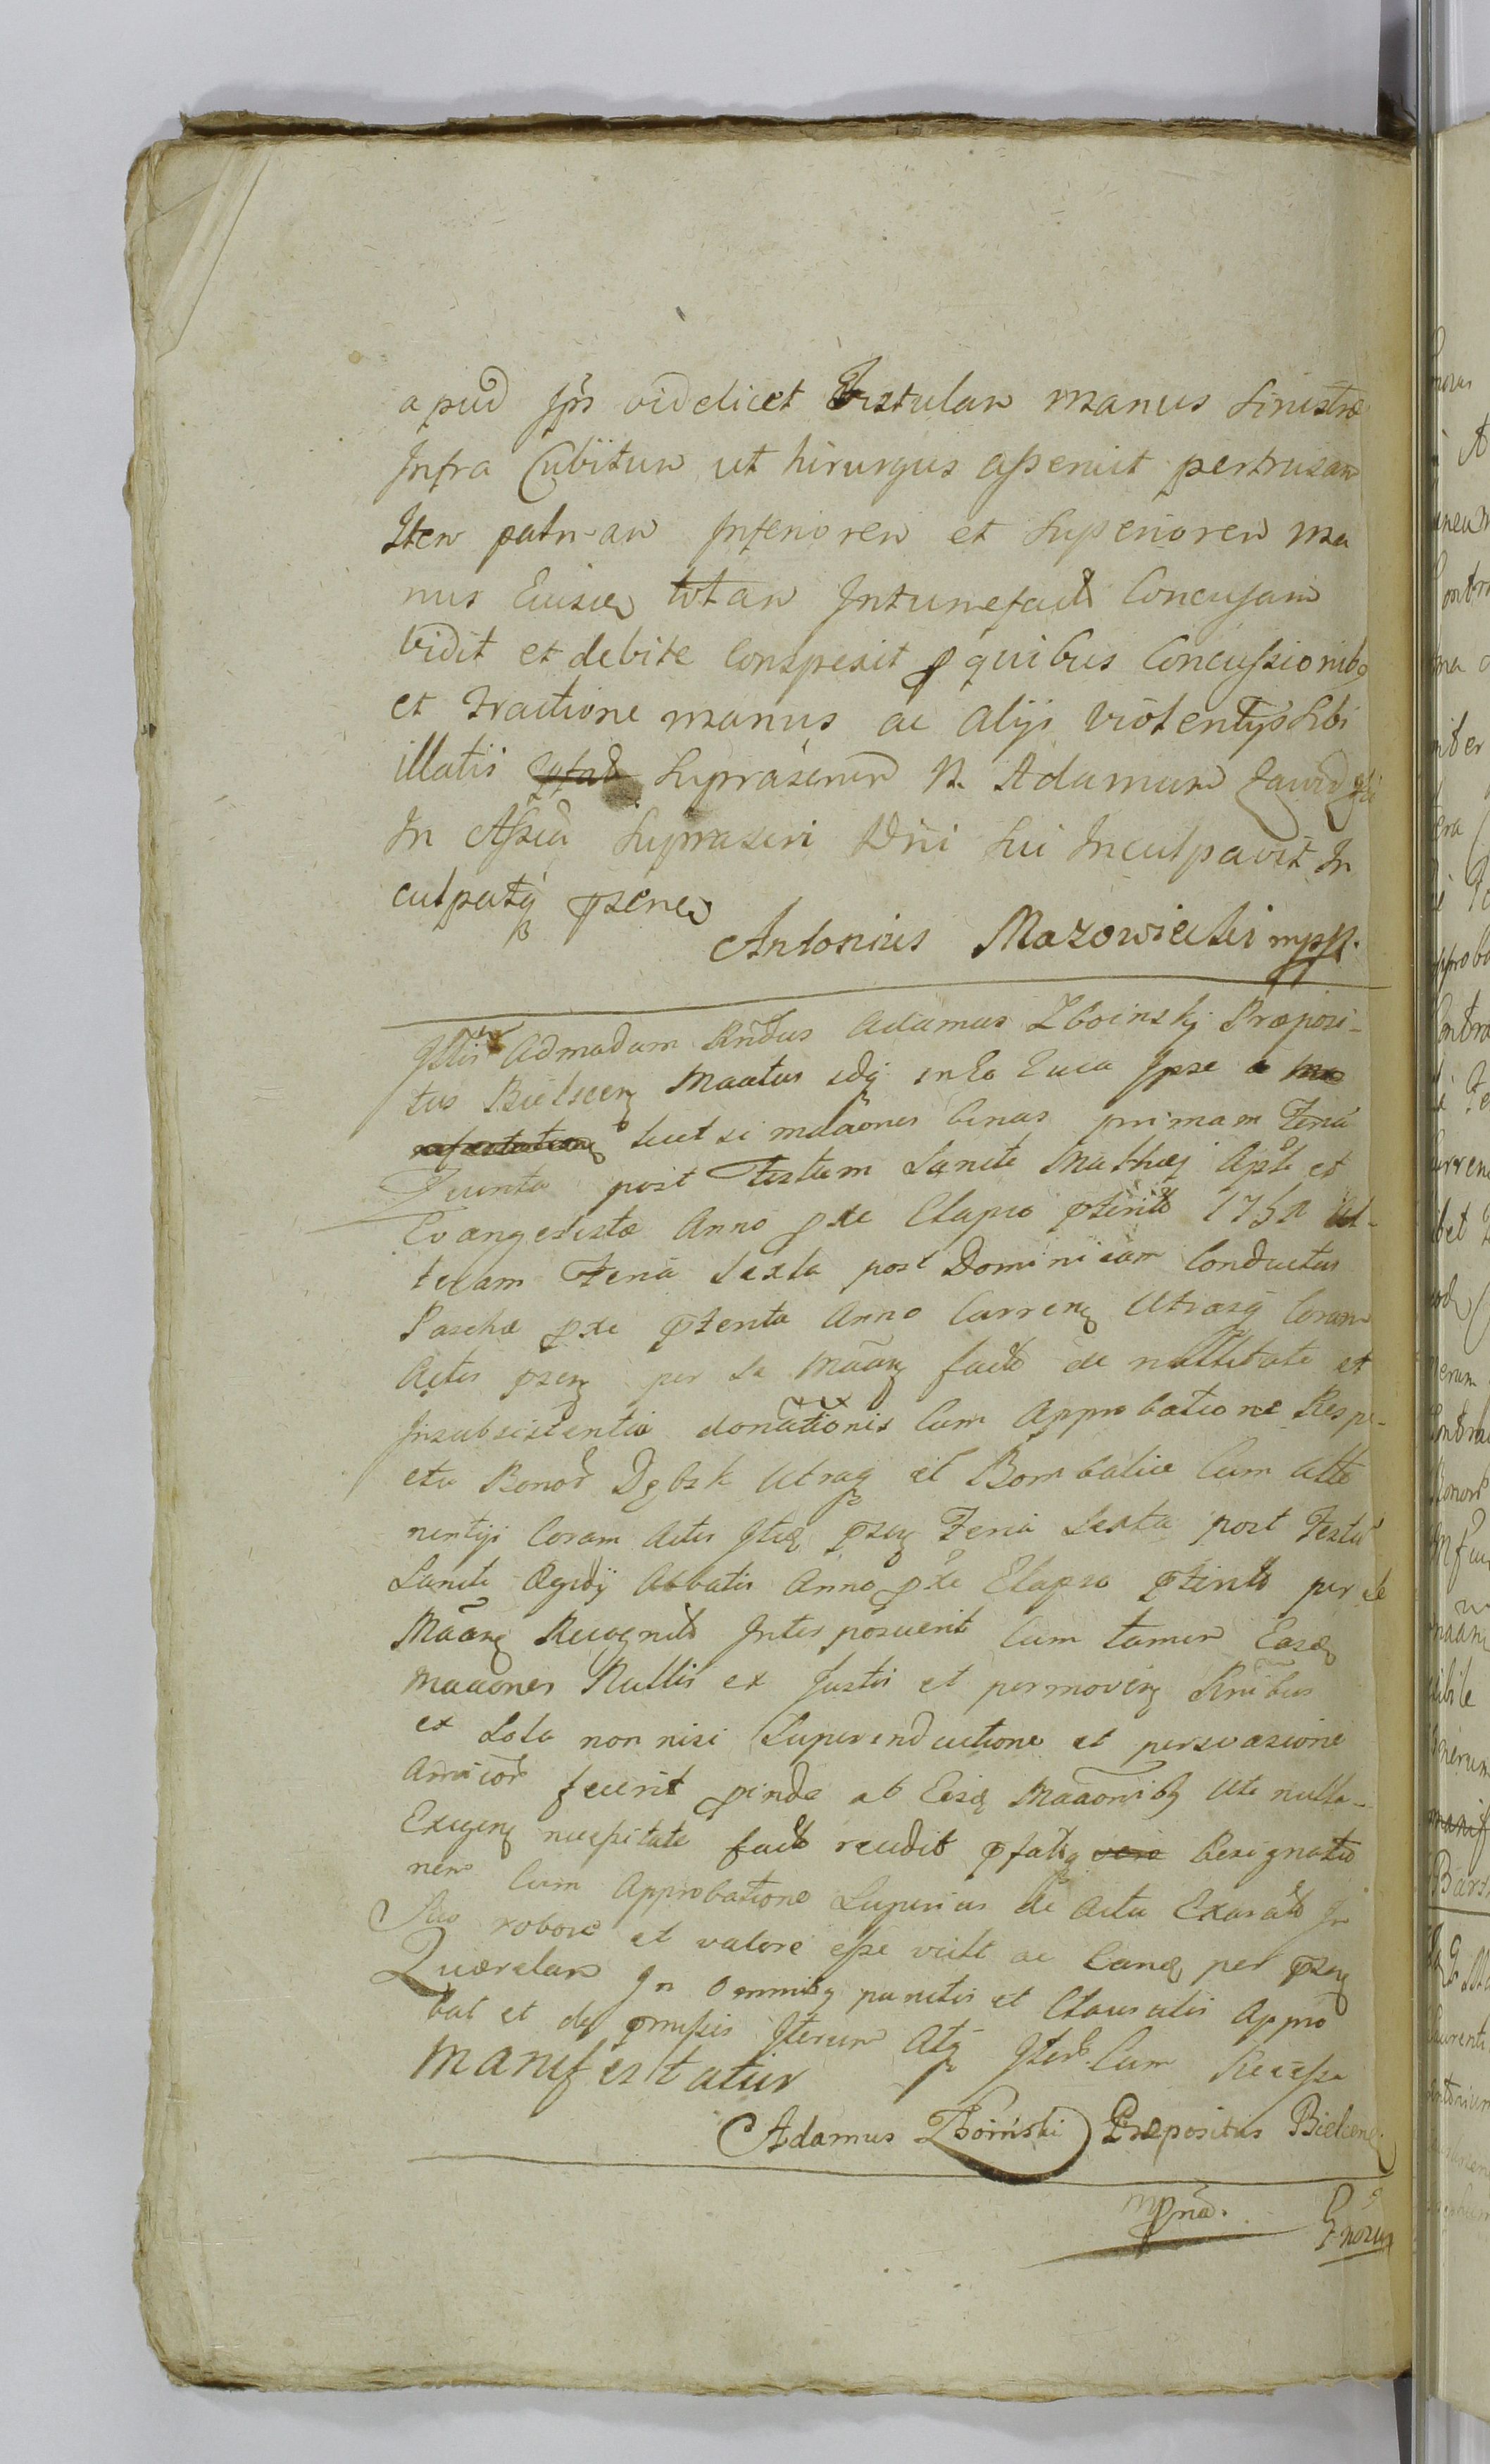 apud Ipm videlicet Fistulam manus Sinistræ
Infra Cubitum ut hirurgus asseruit pertrusam
Item palmam Inferiorem et Superiorem ma
nus Eiusdem totam Intumefactam Concussam
Vidit et debite Conspexit p quibus Concussionibq
et tractione manus ac alijs violentijs Sibi
illatis Suprascrium N. Adamum
In Assia Suprascri Dni Sui Inculpavit In
culpatq psenes
Antonius Mazowiecki mpp.
Illtris Admodum Rndus Adamus Zboinskj Præposi-
tus Bielscen Manatus
licet si mnaones binas primam Feria
Quinta post Festum Sancti Mathæj Apli et
Evangelistæ Anno pxe Elapso pterito 1752 Al-
teram Feria Sexta post Dominicam Conductus
Paschæ pxe pterita Anno Curren Utrasq Coram
Actis psen per Se Maan facta de nullitate et
Insubsistentia donationis Cum Approbatione Respe-
ctu Bonor Dębsk Utraq et Bombalice Cum atte
nentijs Coram Actis psen Feria Sexta post Festu
Sancti Ægidij Abbatis Anno pxe Elapso pterito per Se
Maan Recognita Interposuerit Cum tamen Easd
Maaones Nullis ex Justis et permoven Rnibus
ex Sola non nisi Superinductione et persvasione
Amicor fecerit pinde ab Eisd Maaonibq Uti nulla-
Exigen necessitate facta recedit pfatq vero Resignatio
nem Cum Approbatione Superius de Actu Exarata In
Suo robore et valore esse vult ac Eand per psen
Quærelam In omnibq punctis et Clausulis Appro
bat et de pmissis Iterum Atq Iter. Cum Recessu
Manifestatur
Adamus Zboinski Præpositus Bielcen
mpna.
Gnorus